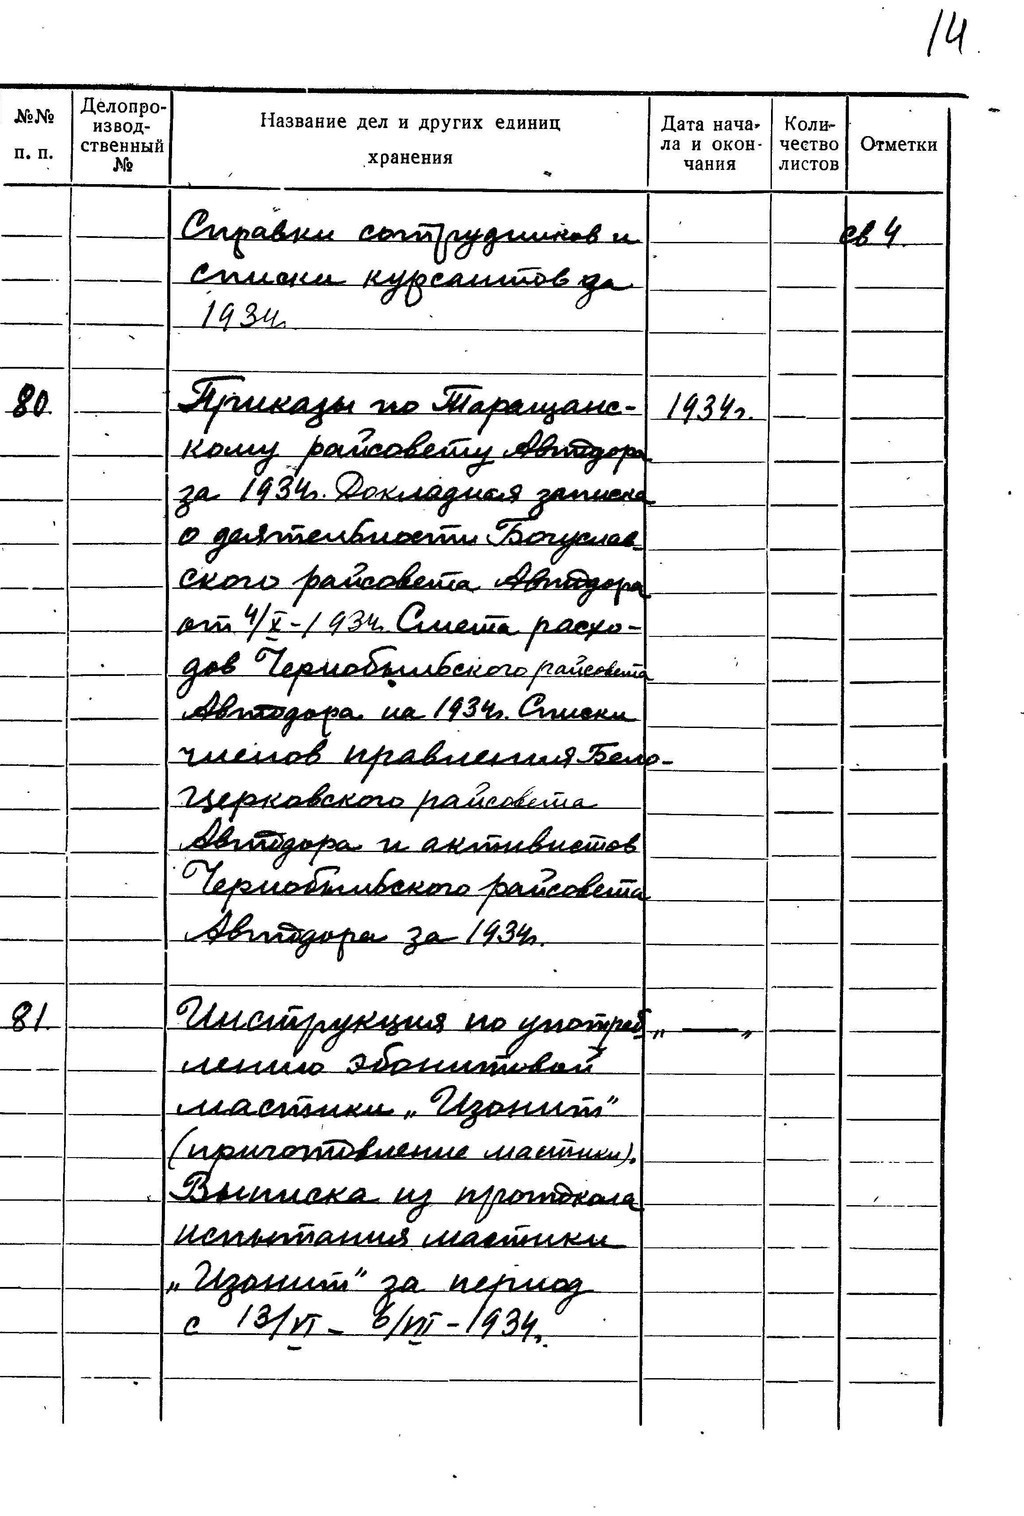 14.
№№ п. п.
Делопро-
извод-
ственный
№
Название дел и других единиц
хранения
Дата нача-
ла и окон-
чания
Коли-
чество
листов
Отметки
Справки сотрудников и св 4.
списки курсантов за
1934г.
80. Приказы по Таращанс- 1934г.
кому райсовету Автодора
за 1934г. Докладная записка
о деятельности Богуслав-
ского райсовета Автодора
от 4/X-1934г. Смета расхо-
дов Чернобыльского райсовета
Автодора на 1934г. Списки
членов правления Бело-
церковского райсовета
Автодора и активистов
Чернобыльского райсовета
Автодора за 1934г.
81. Инструкция по употреб „ — „
лению эбонитовой
мастики „Изонит"
(приготовление мастики).
Выписка из протокола
испытания мастики
„Изонит" за период
с 13/VI - 6/VII - 1934г.